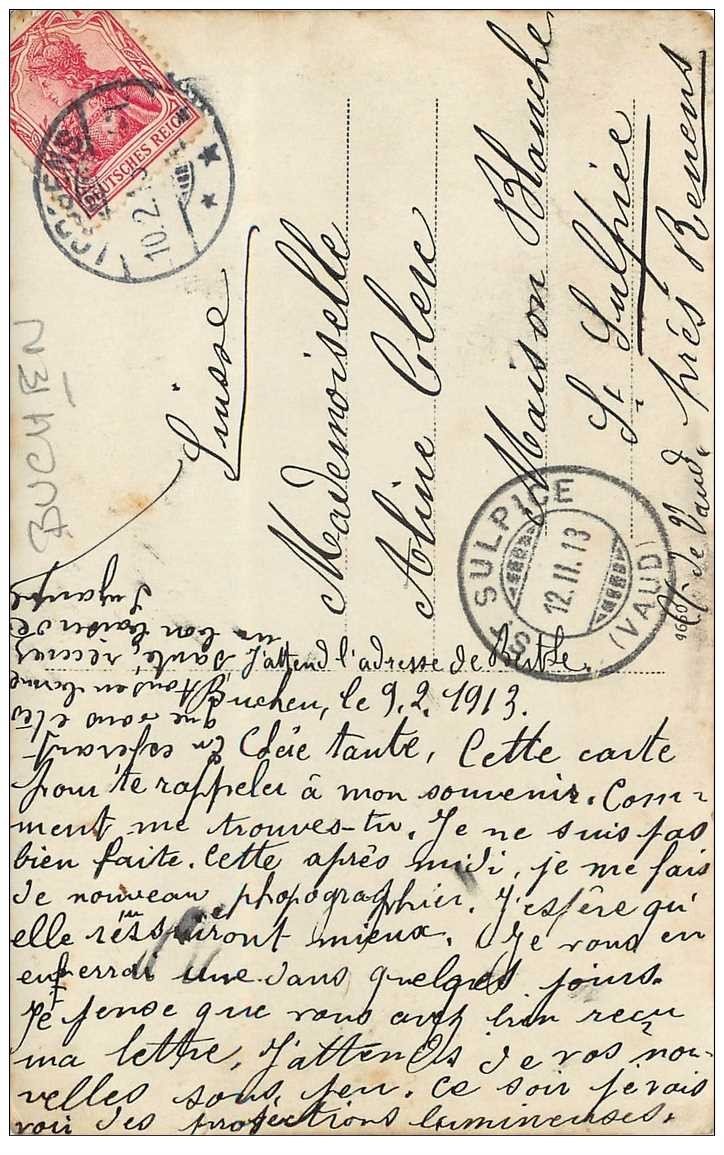 DEUTSCHES REICH
10.2.13
BUCHEN
Suisse
Mademoiselle
Aline Clerc
Maison Blanche
St Sulpice
près Renens
Ct de Vaud.
ST SULPICE
12.II.13
(VAUD)
9660
J'attend l'adresse de Berthe.
Buchen, le 9.2.1913.
Chère tante, Cette carte
pour te rappeler à mon souvenir. Com-
ment me trouves-tu. Je ne suis pas
bien faite. Cette après midi, je me fais
de nouveau phopographier. J'espère qu'
elle réussiront mieux. Je vous en
enverrai une dans quelques jours.
Je pense que vous avez bien reçu
ma lettre, J'attends de vos nou-
velles sous peu. Ce soir je vais
voir des projections lumineuses.
En espérant
que vous êtes
tous en bonne
santé, recevez
un bon baiser de
Suzanne